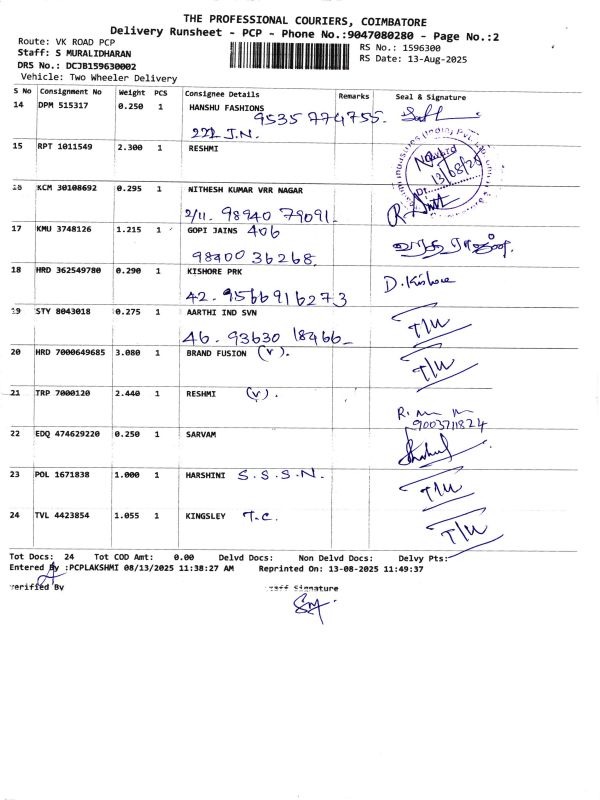 THE PROFESSIONAL COURIERS, COIMBATORE
Delivery Runsheet - PCP - Phone No.:9047080280 - Page No.:2
Route: VK ROAD PCP
RS No.: 1596300
Staff: S MURALIDHARAN
RS Date: 13-Aug-2025
DRS No.: DCJB159630002
Vehicle: Two Wheeler Delivery
S No Consignment No Weight PCS Consignee Details Remarks Seal & Signature
14 DPM 515317 0.250 1 HANSHU FASHIONS
9535774755.
222 J.N.
15 RPT 1011549 2.300 1 RESHMI
13/08/25
16 KCM 30108692 0.295 1 NITHESH KUMAR VRR NAGAR
2/11. 98940 79091.
17 KMU 3748126 1.215 1 GOPI JAINS 406
98400 36268.
18 HRD 362549780 0.290 1 KISHORE PRK D.Kishore
42. 9566916273
19 STY 8043018 0.275 1 AARTHI IND SVN
46. 93630 18466 T/W
20 HRD 7000649685 3.080 1 BRAND FUSION (v). T/W
21 TRP 7000120 2.440 1 RESHMI (v).
9003711824
22 EDQ 474629220 0.250 1 SARVAM
23 POL 1671838 1.000 1 HARSHINI S.S.S.N. T/W
24 TVL 4423854 1.055 1 KINGSLEY T.C. T/W
Tot Docs: 24 Tot COD Amt: 0.00 Delvd Docs: Non Delvd Docs: Delvy Pts:
Entered By :PCPLAKSHMI 08/13/2025 11:38:27 AM Reprinted On: 13-08-2025 11:49:37
Verified By Staff Signature